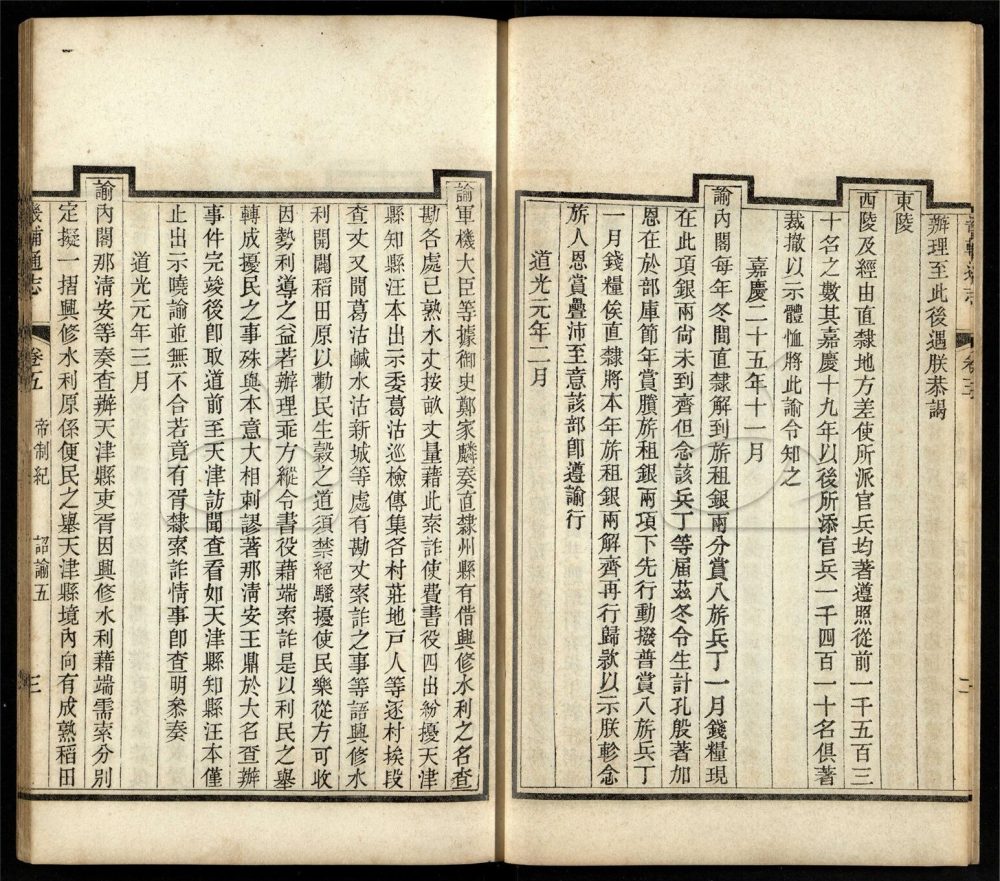 畿輔通志 卷五 二
辦理至此後遇朕恭謁
東陵
西陵及經由直隸地方差使所派官兵均著遵照從前一千五百三
十名之數其嘉慶十九年以後所添官兵一千四百一十名俱著
裁撤以示體恤將此諭令知之
嘉慶二十五年十一月
諭內閣每年冬間直隸解到旂租銀兩分賞八旂兵丁一月錢糧現
在此項銀兩尚未到齊但念該兵丁等屆茲冬令生計孔殷著加
恩在於部庫節年賞賸旂租銀兩項下先行動撥普賞八旂兵丁
一月錢糧俟直隸將本年旂租銀兩解齊再行歸款以示朕軫念
旂人恩賞疊沛至意該部卽遵諭行
道光元年二月
諭軍機大臣等據御史鄭家麟奏直隸州縣有借興修水利之名查
勘各處已熟水丈按畝丈量藉此索詐使費書役四出紛擾天津
縣知縣汪本出示委葛沽巡檢傳集各村莊地戸人等逐村挨段
查丈又聞葛沽鹹水沽新城等處有勘丈索詐之事等語興修水
利開闢稻田原以勸民生穀之道須禁絕騷擾使民樂從方可收
因勢利導之益若辦理乖方縱令書役藉端索詐是以利民之舉
轉成擾民之事殊與本意大相剌謬著那淸安王鼎於大名查辦
事件完竣後卽取道前至天津訪聞查看如天津縣知縣汪本僅
止出示曉諭並無不合若竟有胥隸索詐情事卽查明叅奏
道光元年三月
諭內閣那淸安等奏查辦天津縣吏胥因興修水利藉端需索分別
定擬一摺興修水利原係便民之舉天津縣境內向有成熟稻田
畿輔通志 卷五 帝制紀 詔諭五 三